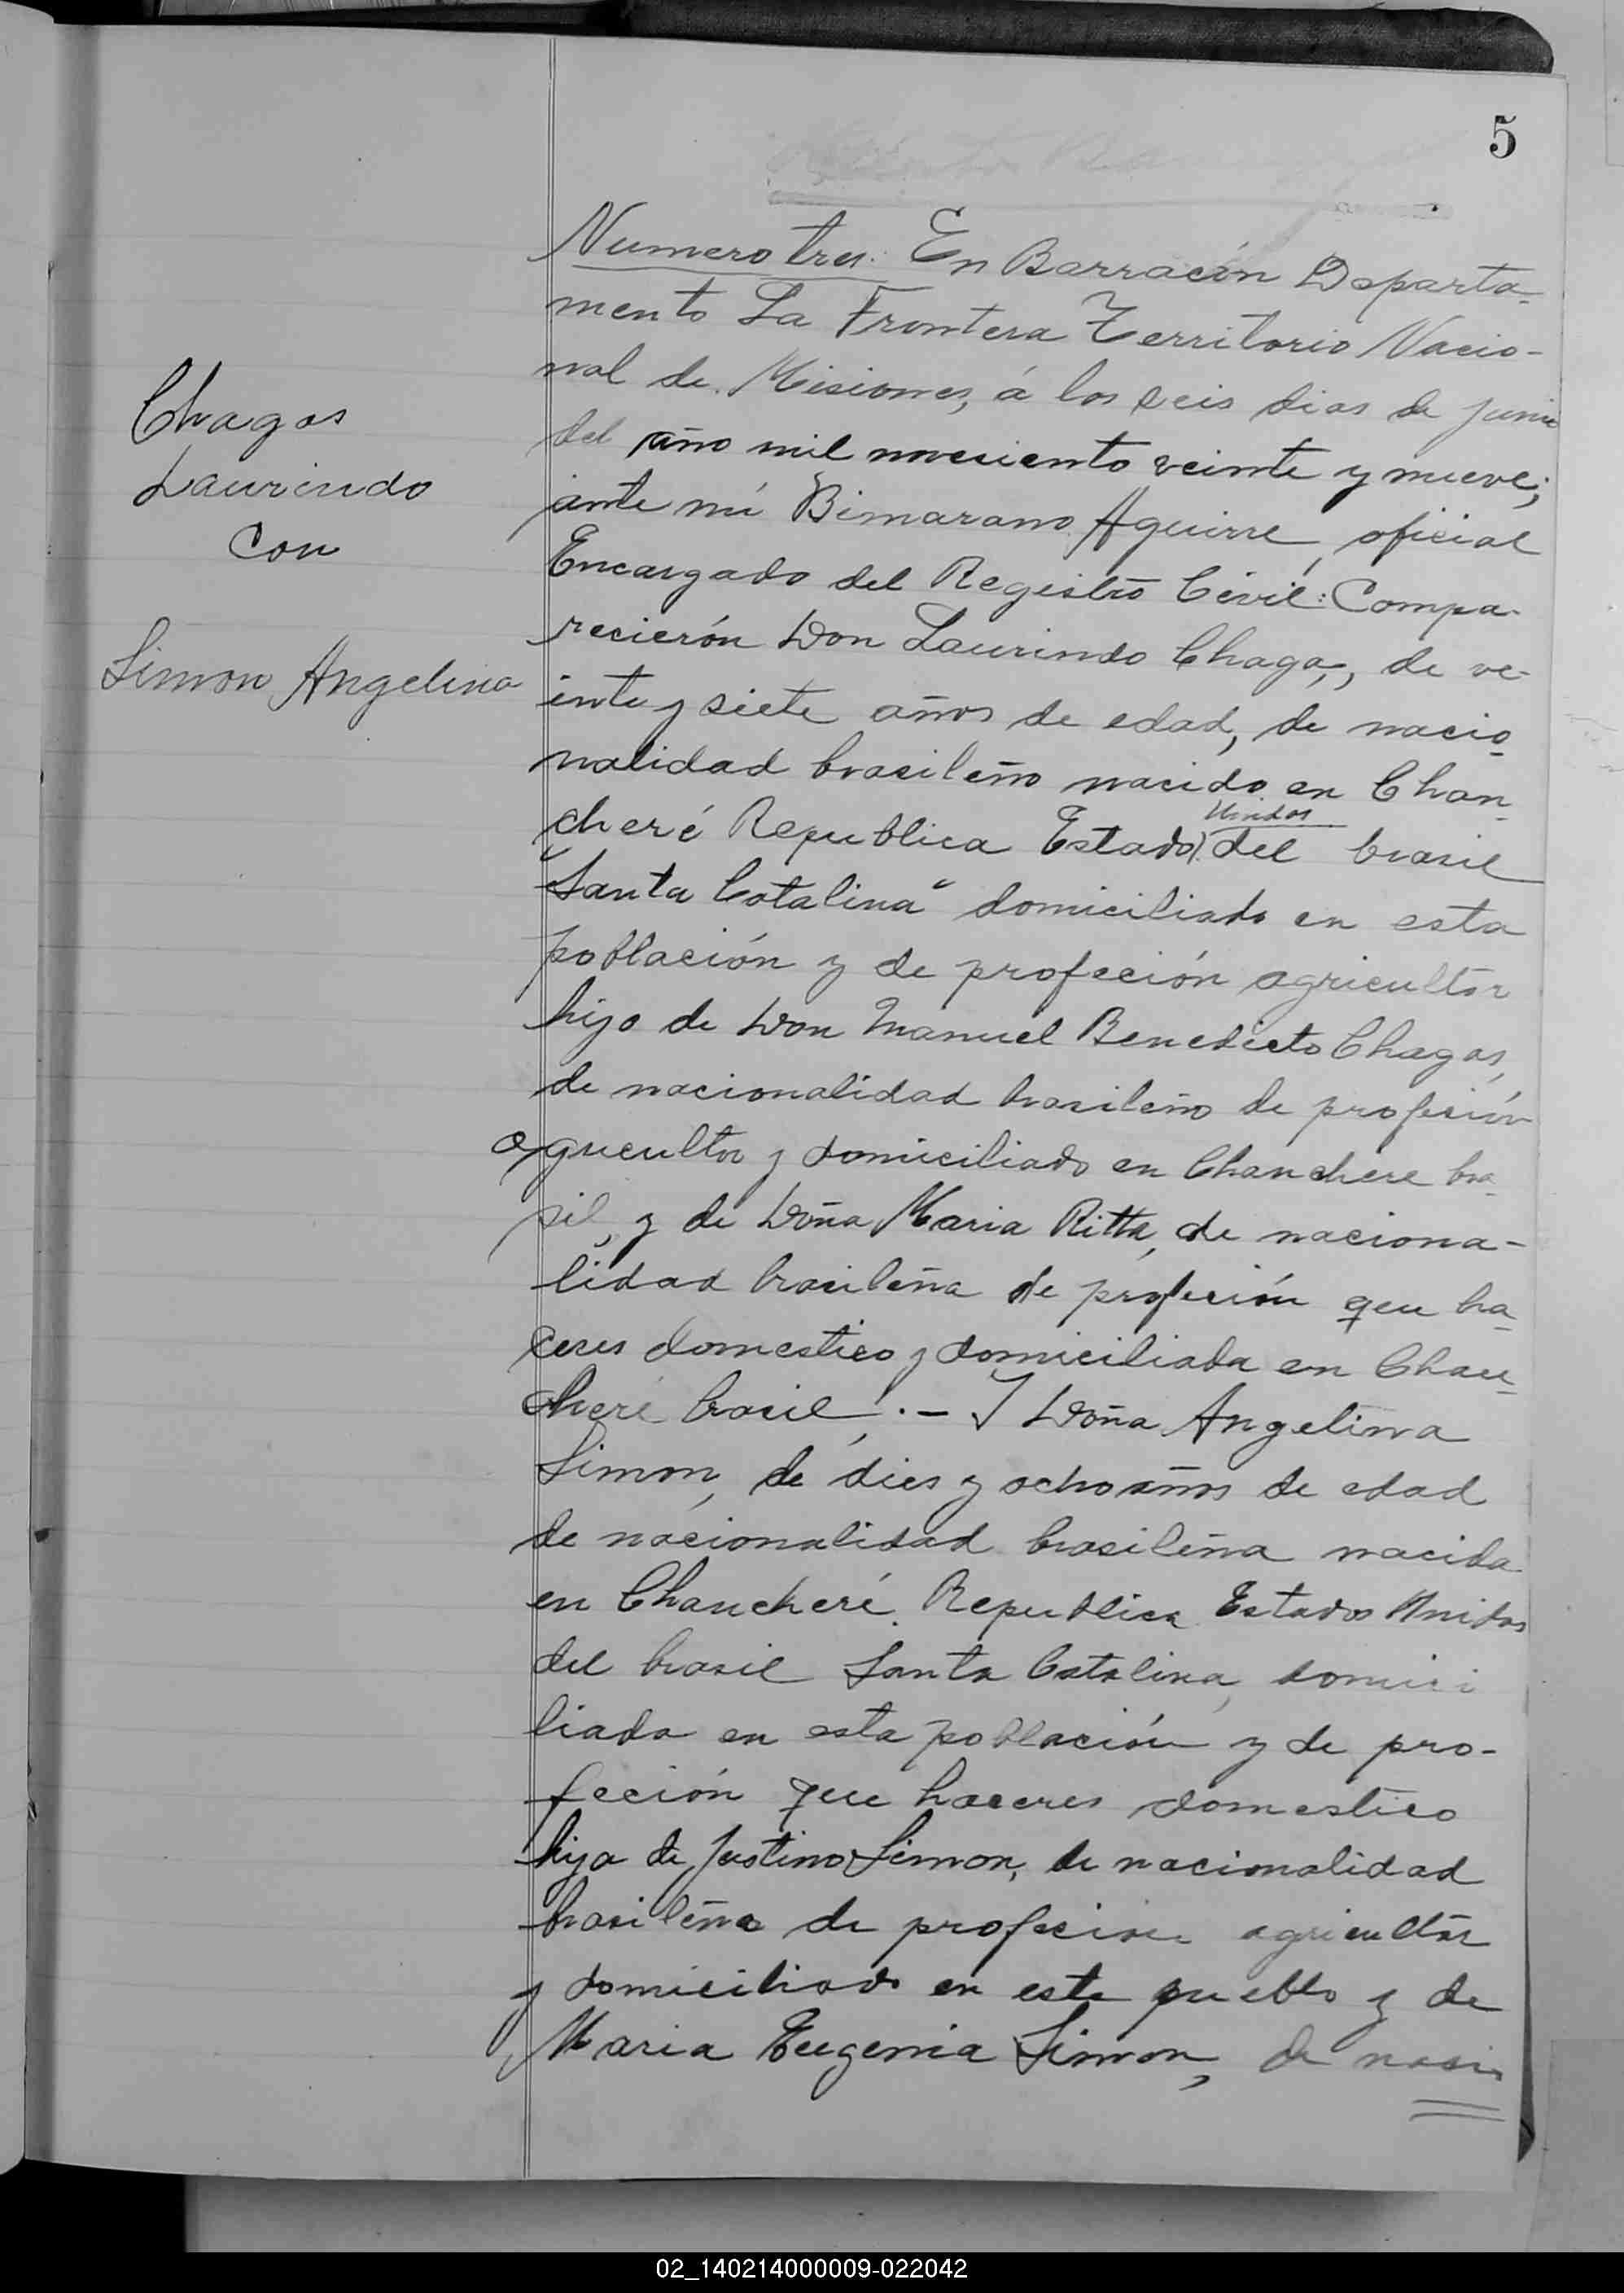 5
Numero tres: En Barracón Departa-
mento La Frontera Territorio Nacio-
nal de Misiones, á los seis dias de junio
del año mil novesiento veinte y nueve;
ante mí Bimarano Aguirre, oficial
Encargado del Registro Civil: Compa-
recierón Don Laurindo Chagas, de ve-
inte y siete años de edad, de nacio-
nalidad brasileño nacido en Chan-
Unidos
cheré Republica Estados del brasil
"Santa Catalina" domiciliado en esta
población y de profeción agricultor
hijo de Don Manuel Benedicto Chagas,
de nacionalidad brasileño de profesión
agricultor y domiciliado en Chanchere bra-
sil, y de Doña Maria Ritta, de naciona-
lidad brasileña de profesión que ha-
ceres domestico y domiciliada en Chan-
cheré brasil, .- Y Doña Angelina
Simon, de dies y ocho años de edad
de nacionalidad brasileña nacida
en Chancheré Republica Estados Unidos
del brasil Santa Catalina, domici
liada en esta población y de pro-
feción que haceres domestico
hija de Justino Simon, de nacionalidad
brasileña de profecion agricultor
y domiciliado en este pueblo y de
Maria Eugenia Simon, de nacio
Chagas
Laurindo
Con
Simon Angelina
02_140214000009-022042